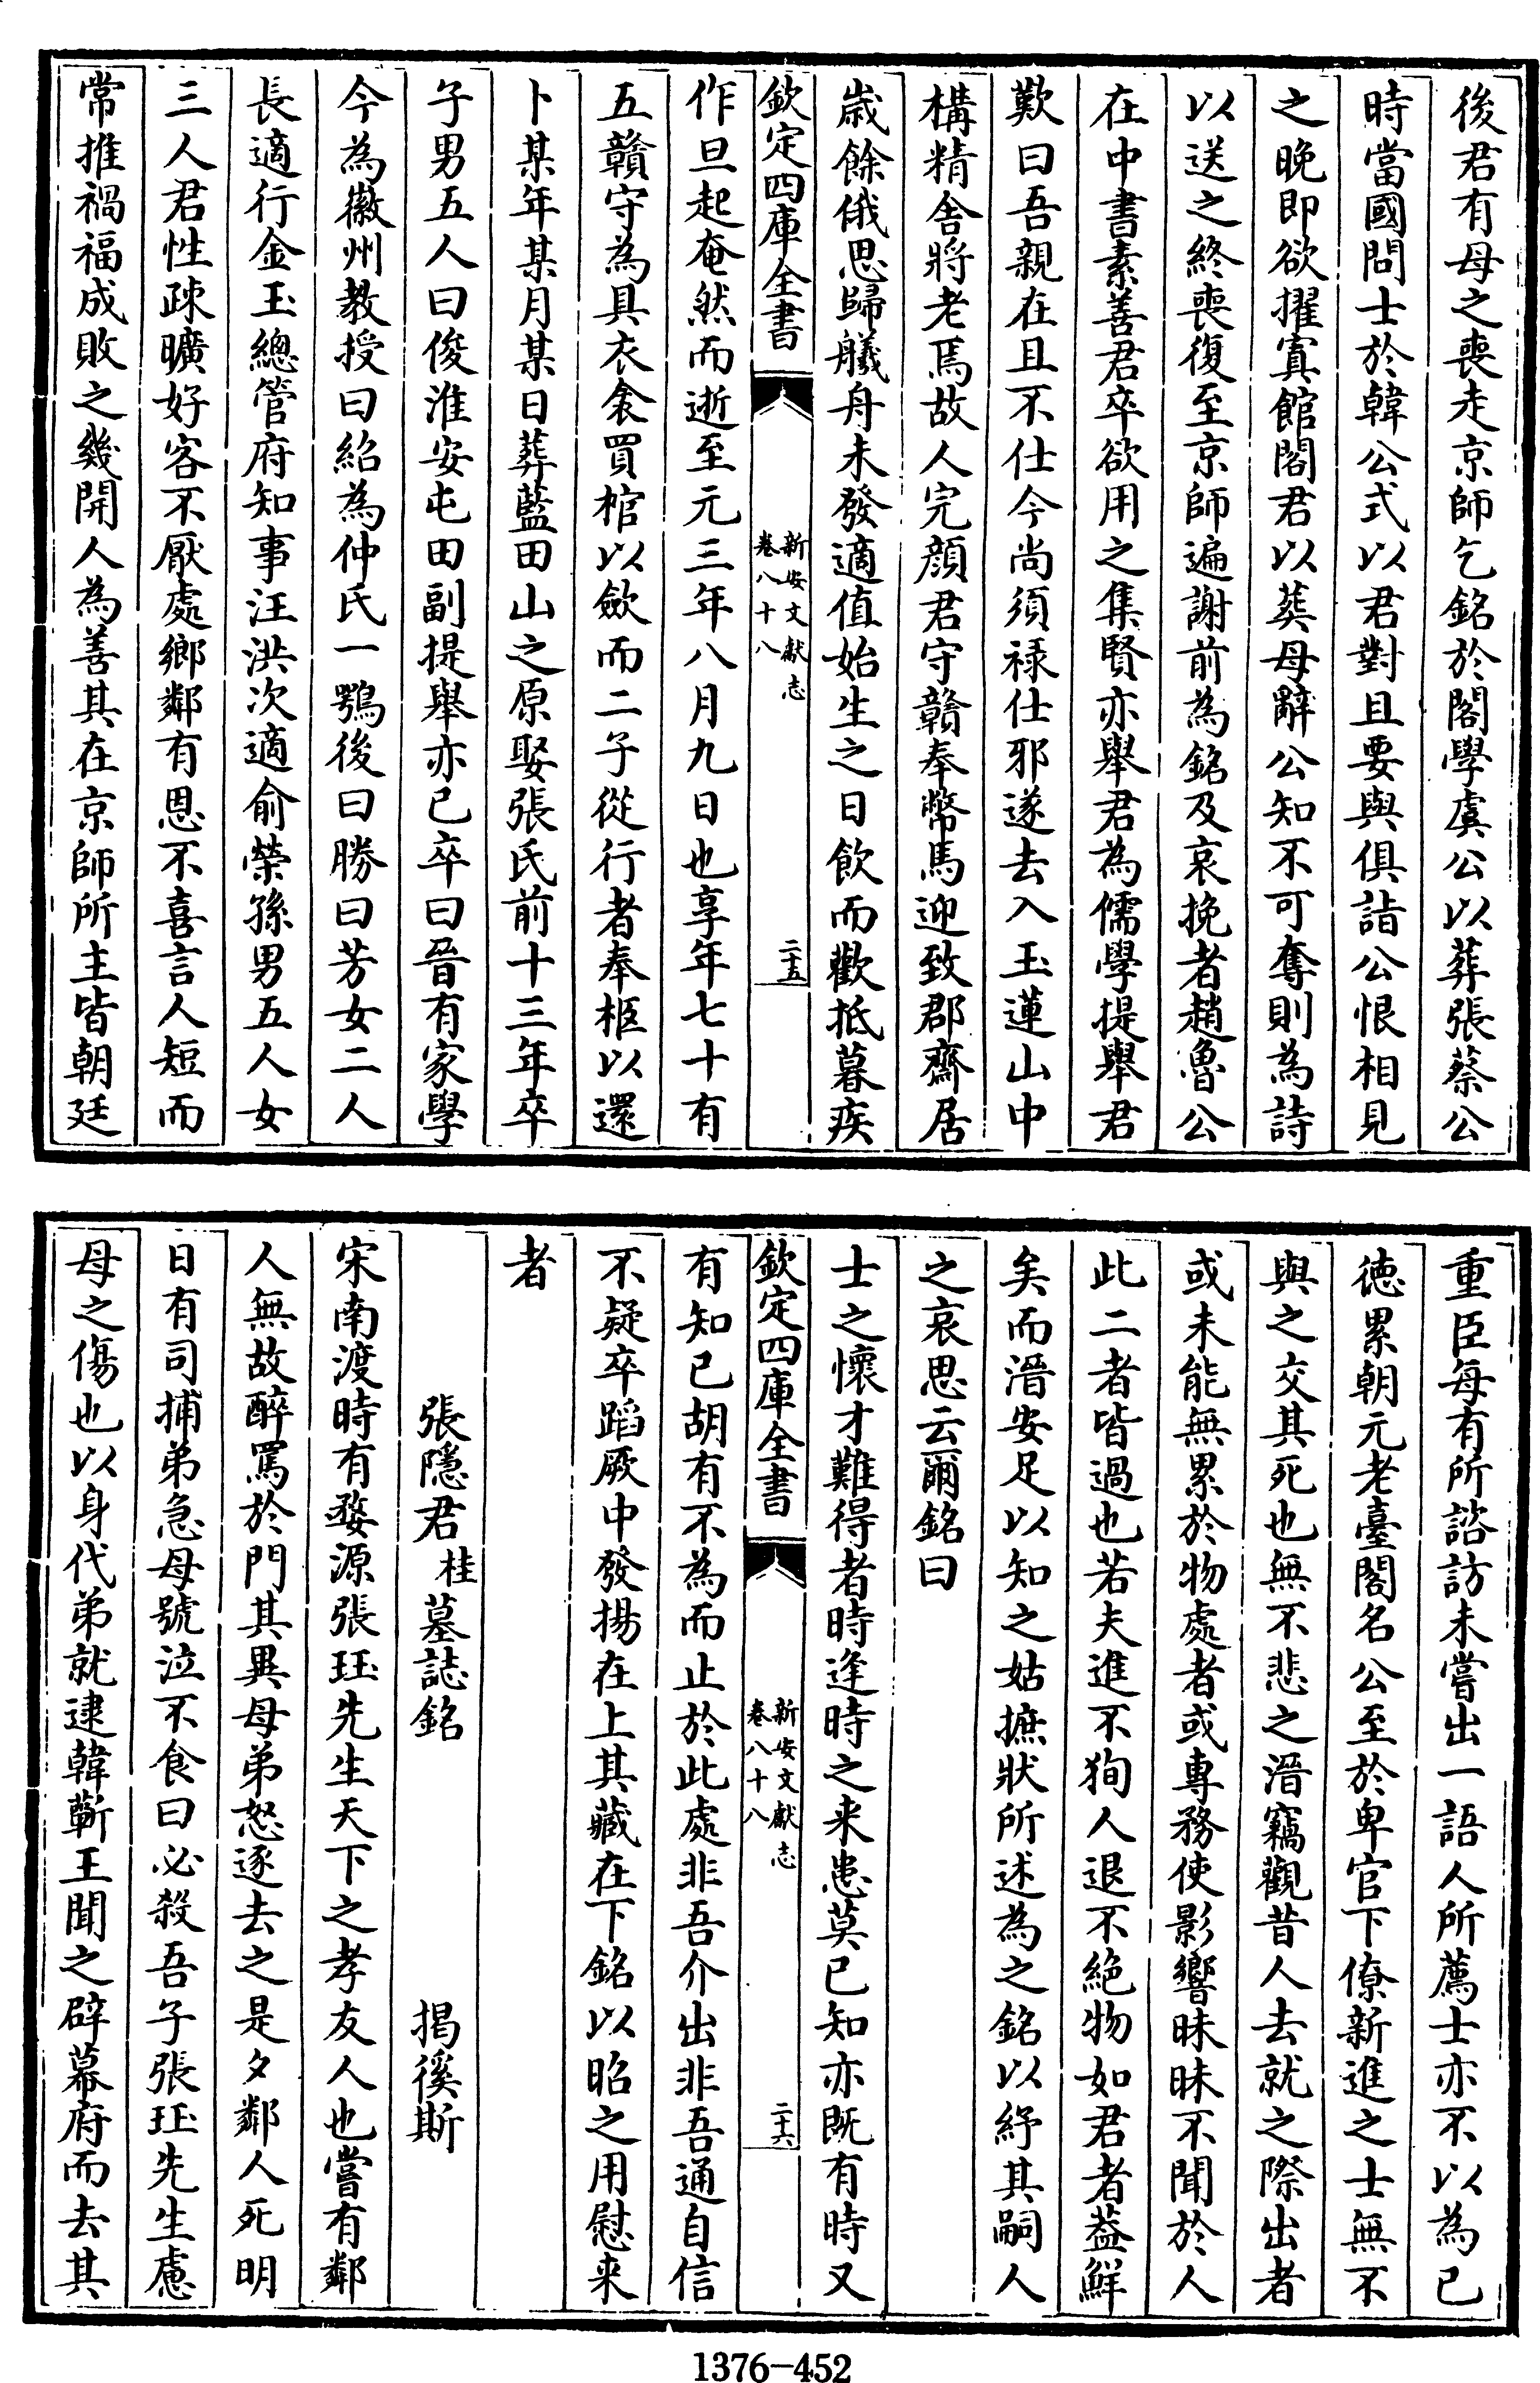 後君有母之喪走京師乞銘於閣學虞公以葬張蔡公
時當國問士於韓公式以君對且要與俱詣公恨相見
之晚即欲擢寘館閣君以葬母辭公知不可奪則為詩
以送之終喪復至京師遍謝前為銘及哀挽者趙魯公
在中書素善君卒欲用之集賢亦舉君為儒學提舉君
歎曰吾親在且不仕今尚須禄仕邪遂去入玉蓮山中
構精舍將老焉故人完顔君守贛奉幣馬迎致郡齋居
歲餘俄思歸艤舟未發適值始生之日飲而歡抵暮疾
欽定四庫全書
新安文獻志
卷八十八
二十五
作旦起奄然而逝至元三年八月九日也享年七十有
五贛守為具衣衾買棺以斂而二子從行者奉柩以還
卜某年某月某日葬藍田山之原娶張氏前十三年卒
子男五人曰俊淮安屯田副提舉亦已卒曰晉有家學
今為徽州教授曰紹為仲氏一鶚後曰勝曰芳女二人
長適行金玉總管府知事汪洪次適俞榮孫男五人女
三人君性疎曠好客不厭處鄉鄰有恩不喜言人短而
常推禍福成敗之幾開人為善其在京師所主皆朝廷
重臣每有所諮訪未嘗出一語人所薦士亦不以為已
徳累朝元老臺閣名公至於卑官下僚新進之士無不
與之交其死也無不悲之溍竊觀昔人去就之際出者
或未能無累於物處者或專務使影響昧昧不聞於人
此二者皆過也若夫進不狥人退不絶物如君者葢鮮
矣而溍安足以知之姑摭狀所述為之銘以紓其嗣人
之哀思云爾銘曰
士之懷才難得者時逢時之来患莫已知亦既有時又
欽定四庫全書
新安文獻志
卷八十八
二十六
有知已胡有不為而止於此處非吾介出非吾通自信
不疑卒蹈厥中發揚在上其藏在下銘以昭之用慰来
者
張隱君桂墓誌銘　揭徯斯
宋南渡時有婺源張珏先生天下之孝友人也嘗有鄰
人無故醉罵於門其異母弟怒逐去之是夕鄰人死明
日有司捕弟急母號泣不食曰必殺吾子張珏先生慮
母之傷也以身代弟就逮韓蘄王聞之辟幕府而去其
1376-452